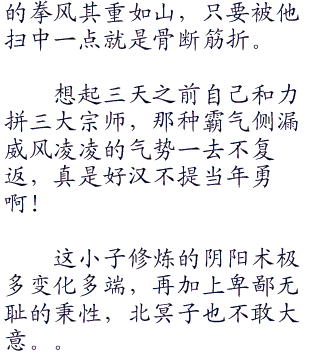 的拳风其重如山，只要被他
扫中一点就是骨断筋折。
想起三天之前自己和力
拼三大宗师，那种霸气侧漏
威风凌凌的气势一去不复
返，真是好汉不提当年勇
啊！
这小子修炼的阴阳术极
多变化多端，再加上卑鄙无
耻的秉性，北冥子也不敢大
意。。